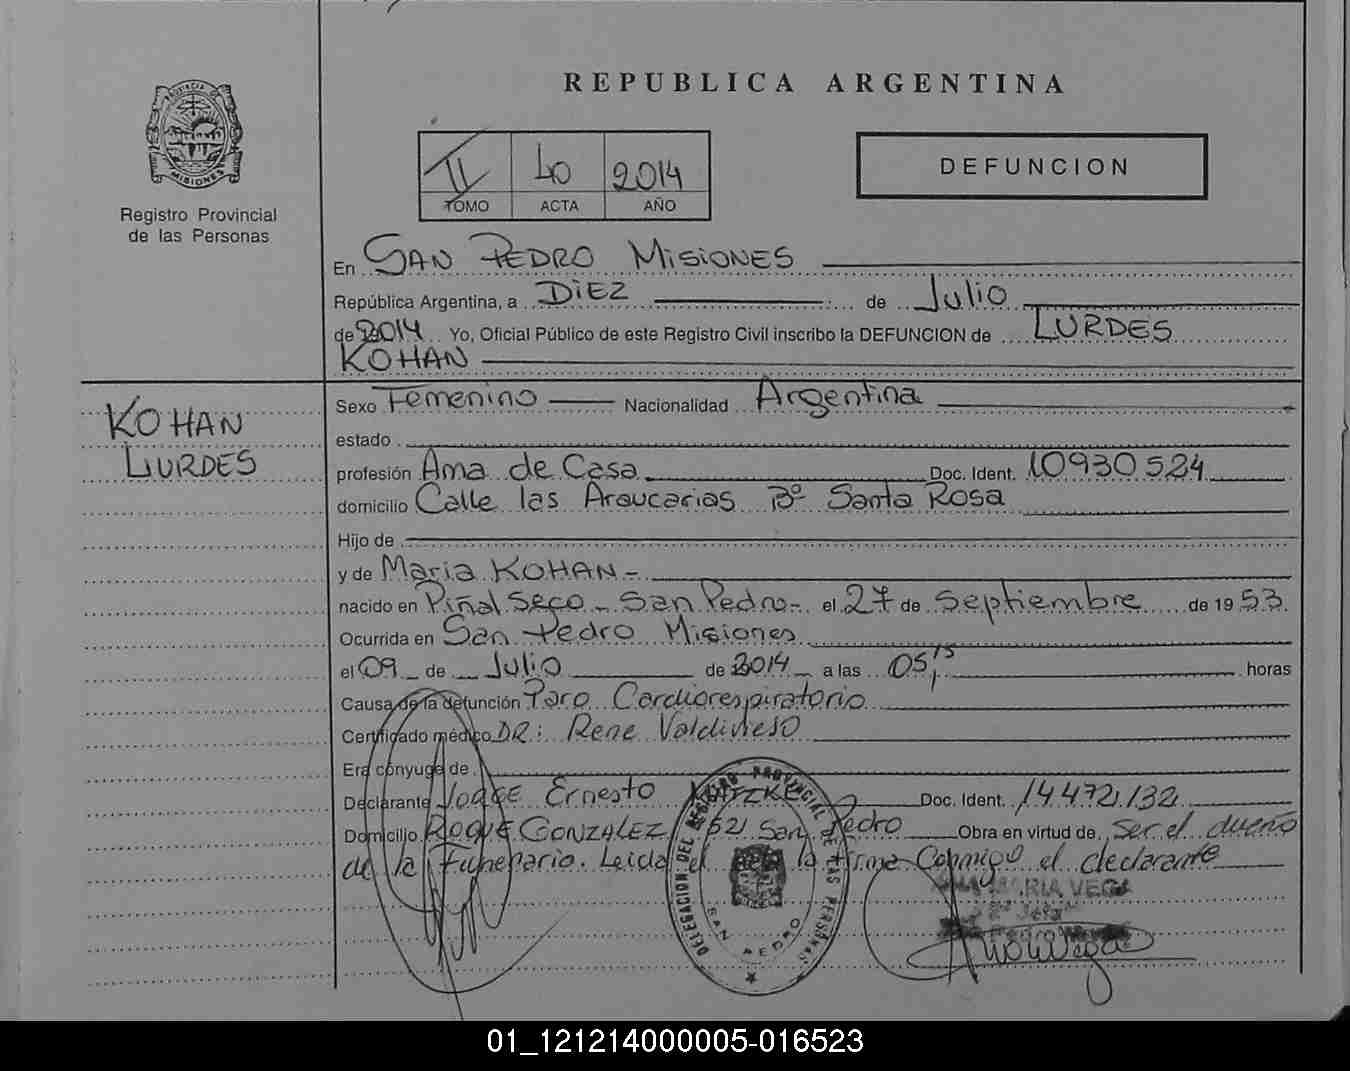 REPUBLICA ARGENTINA
PROVINCIA D MISIONES
Registro Provincial
de las Personas
II 40 2014
TOMO ACTA AÑO
DEFUNCION
En San Pedro Misiones
República Argentina, a Diez de Julio
de 2014 Yo, Oficial Público de este Registro Civil inscribo la DEFUNCION de LURDES
KOHAN
KOHAN
LURDES
Sexo Femenino Nacionalidad Argentina
estado
profesión Ama de Casa Doc. Ident. 10930524
domicilio Calle las Araucarias Bº Santa Rosa
Hijo de
y de Maria KOHAN-
nacido en Piñal Seco - San Pedro- el 27 de Septiembre de 1953
Ocurrida en San Pedro Misiones
el 09 de Julio de 2014 a las 05,15 horas
Causa de la defunción Paro Cardiorespiratorio
Certificado médico DR: Rene Valdivieso
Era cónyuge de
Declarante Jorge Ernesto Doc. Ident. 14472132
Domicilio Roque Gonzalez 521 San Pedro Obra en virtud de Ser el dueño
de la Funerario. Leida el acta la firma Conmigo el declarante
DELEGACION DEL REGISTRO PROVINCIAL DE LAS PERSONAS
SAN PEDRO
MARIA VEGA
01_121214000005-016523